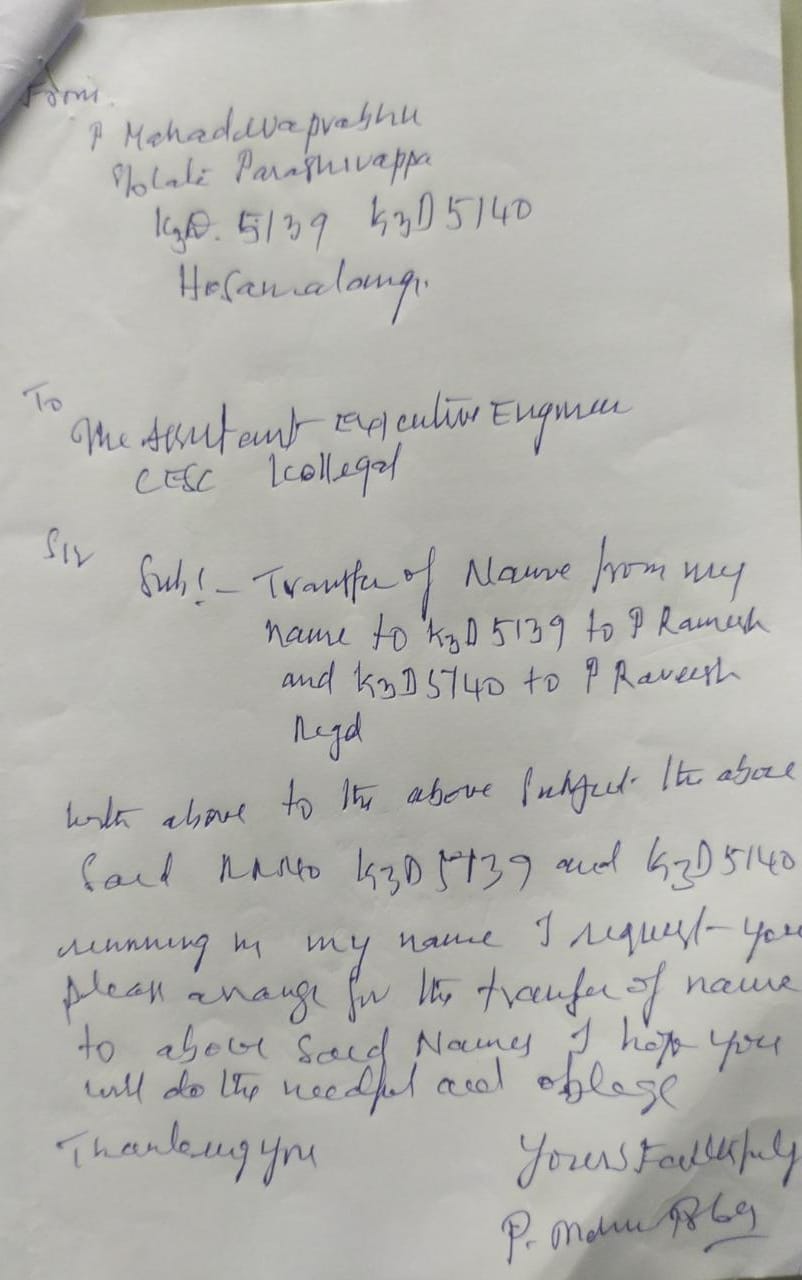 From
P Mahadevaprabhu
S/o Late Parashivappa
KzD. 5139 KzD 5140
Hosamalangi.
To
The Assistant Executive Engineer
CESC Kollegal
Sir
Sub:- Transfer of Name from my
name to KzD 5139 to P Ramesh
and KzD 5140 to P Raveesh
Regd
With above to the above Subject. the above
Said RRNo KzD 5139 and KzD 5140
running in my name I request you
please arrange for the transfer of name
to above Said Names I hope you
will do the needful and oblege
Thanking you
Yours Faithfully
P.